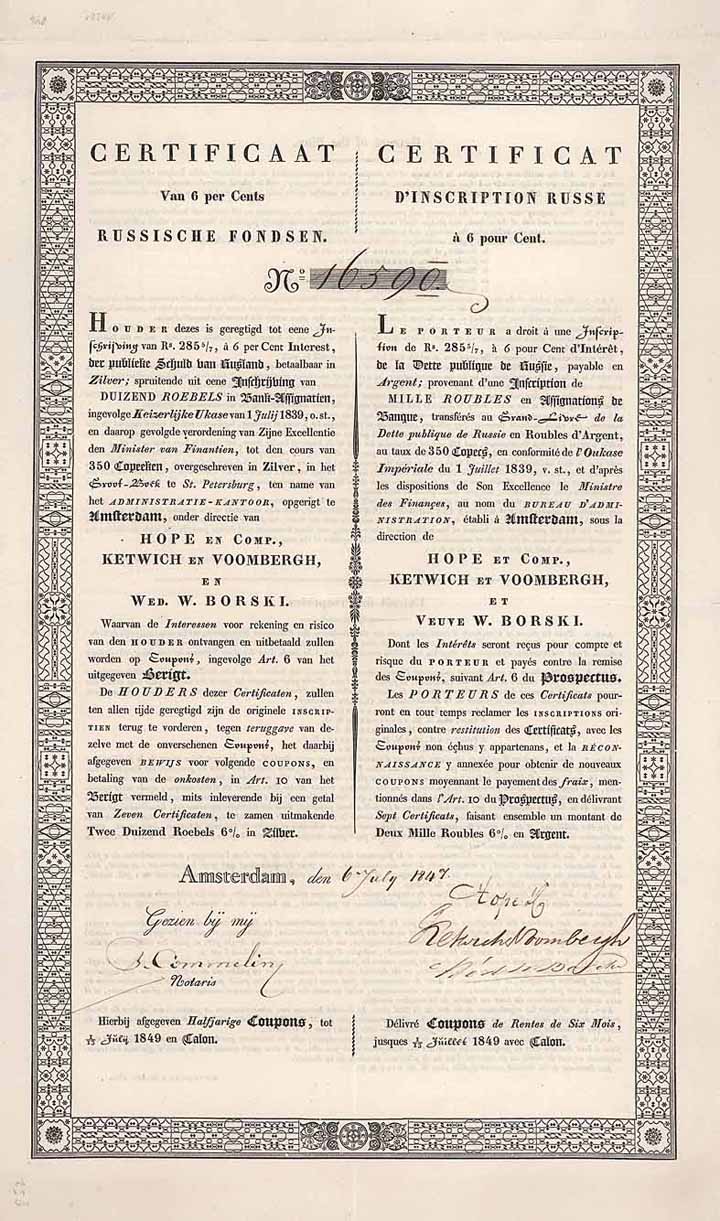 CERTIFICAAT
Van 6 per Cents
RUSSISCHE FONDSEN.
CERTIFICAT
D'INSCRIPTION RUSSE
à 6 pour Cent.
No 16590.
HOUDER dezes is geregtigd tot eene In-
schrijving van Rs. 285 5/7, à 6 per Cent Interest,
der publieke Schuld van Rusland, betaalbaar in
Zilver; spruitende uit eene Inschrijving van
DUIZEND ROEBELS in Bank-Assignatien,
ingevolge Keizerlijke Ukase van 1 Julij 1839, o. st.,
en daarop gevolgde verordening van Zijne Excellentie
den Minister van Finantien, tot den cours van
350 Copecken, overgeschreven in Zilver, in het
Groot-Boek te St. Petersburg, ten name van
het ADMINISTRATIE-KANTOOR, opgerigt te
Amsterdam, onder directie van
HOPE EN COMP.,
KETWICH EN VOOMBERGH,
EN
WED. W. BORSKI.
Waarvan de Interessen voor rekening en risico
van den HOUDER ontvangen en uitbetaald zullen
worden op Coupons, ingevolge Art. 6 van het
uitgegeven Berigt.
De HOUDERS dezer Certificaten, zullen
ten allen tijde geregtigd zijn de originele INSCRIP-
TIEN terug te vorderen, tegen teruggave van de-
zelve met de onverschenen Coupons, het daarbij
afgegeven BEWIJS voor volgende COUPONS, en
betaling van de onkosten, in Art. 10 van het
Berigt vermeld, mits inleverende bij een getal
van Zeven Certificaten, te zamen uitmakende
Twee Duizend Roebels 6% in Zilver.
LE PORTEUR a droit à une Inscrip-
tion de Rs. 285 5/7, à 6 pour Cent d'Intérêt,
de la Dette publique de Russie, payable en
Argent; provenant d'une Inscription de
MILLE ROUBLES en Assignations de
Banque, transférés au Grand-Livre de la
Dette publique de Russie en Roubles d'Argent,
au taux de 350 Copecs, en conformité de l'Oukase
Impériale du 1 Juillet 1839, v. st., et d'après
les dispositions de Son Excellence le Ministre
des Finançes, au nom du BUREAU D'ADMI-
NISTRATION, établi à Amsterdam, sous la
direction de
HOPE ET COMP.,
KETWICH ET VOOMBERGH,
ET
VEUVE W. BORSKI.
Dont les Intérêts seront reçus pour compte et
risque du PORTEUR et payés contre la remise
des Coupons, suivant Art. 6 du Prospectus.
Les PORTEURS de ces Certificats pour-
ront en tout temps reclamer les INSCRIPTIONS ori-
ginales, contre restitution des Certificats, avec les
Coupons non échus y appartenans, et la RÉCON-
NAISSANCE y annexée pour obtenir de nouveaux
COUPONS moyennant le payement des fraix, men-
tionnés dans l'Art. 10 du Prospectus, en délivrant
Sept Certificats, faisant ensemble un montant de
Deux Mille Roubles 6% en Argent.
Amsterdam, den 6 July 1847.
Hope & C
Ketwich & Voombergh
Gezien bij mij
Notaris
Hierbij afgegeven Halfjarige Coupons, tot
1/13 Julij 1849 en Talon.
Délivré Coupons de Rentes de Six Mois,
jusques 1/13 Juillet 1849 avec Talon.